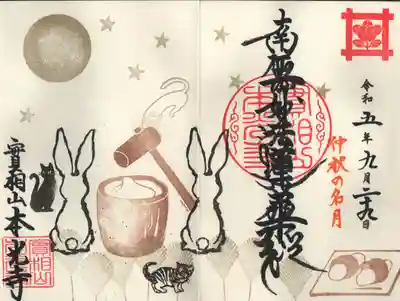 令和五年九月二十九日
仲秋の名月
南無妙法蓮華経
實相山
本光寺